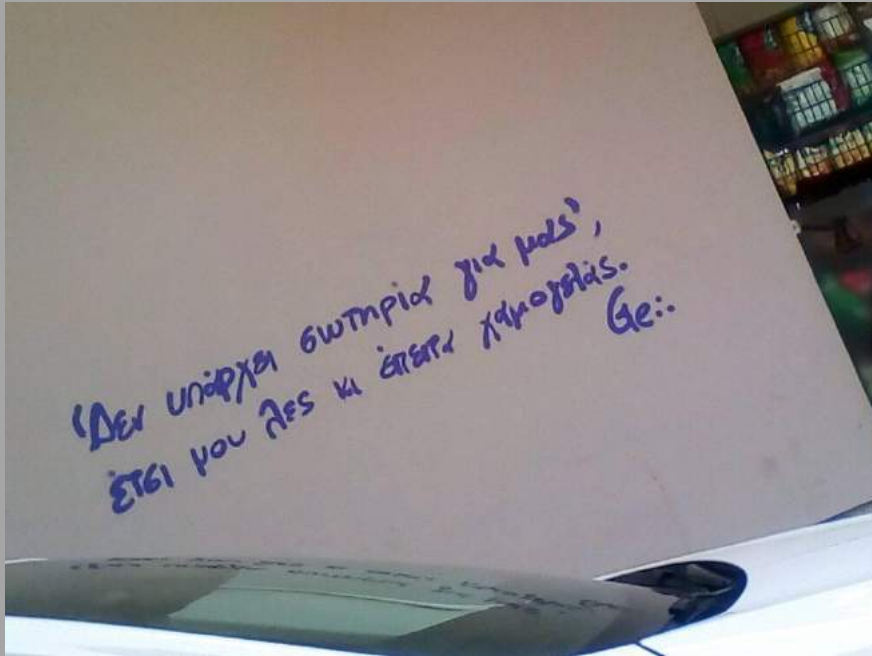 'Δεν υπάρχει σωτηρία για μας',
έτσι μου λες κι έπειτα χαμογελάς.
Ge:.